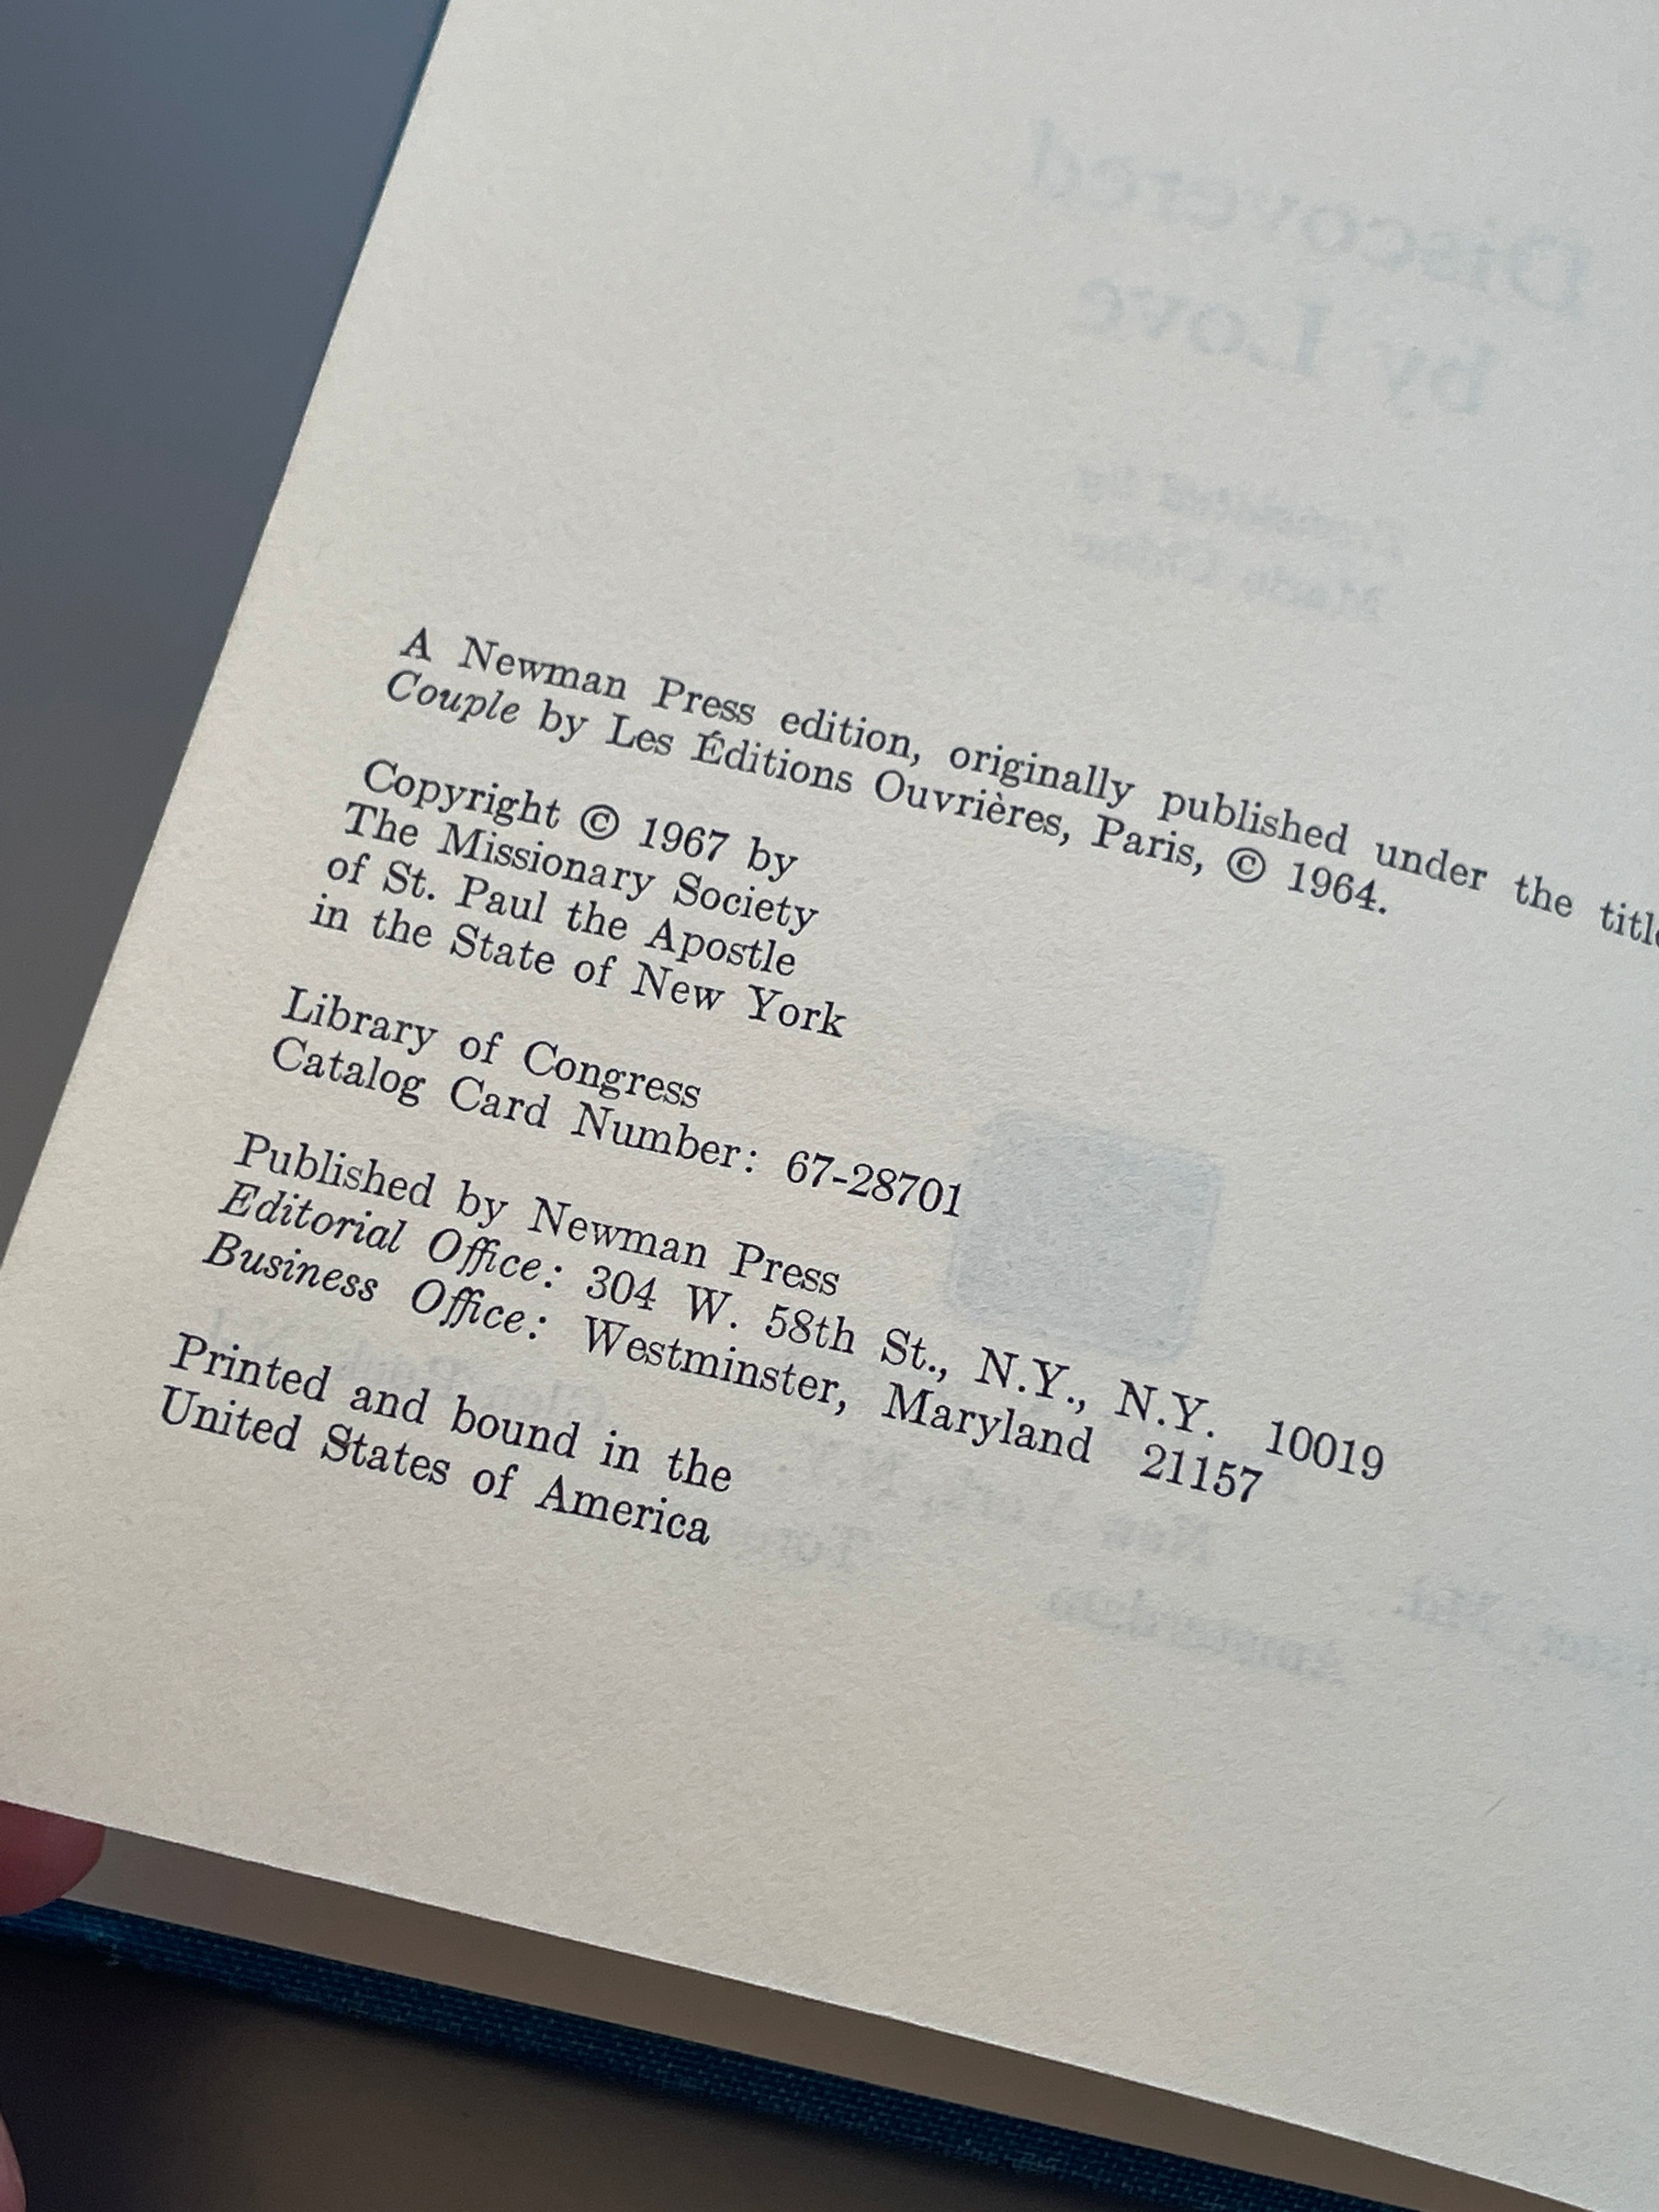 Discovered
by Love
A Newman Press edition, originally published under the title
Couple by Les Éditions Ouvrières, Paris, © 1964.
Copyright © 1967 by
The Missionary Society
of St. Paul the Apostle
in the State of New York
Library of Congress
Catalog Card Number: 67-28701
Published by Newman Press
Editorial Office: 304 W. 58th St., N.Y., N.Y. 10019
Business Office: Westminster, Maryland 21157
Printed and bound in the
United States of America